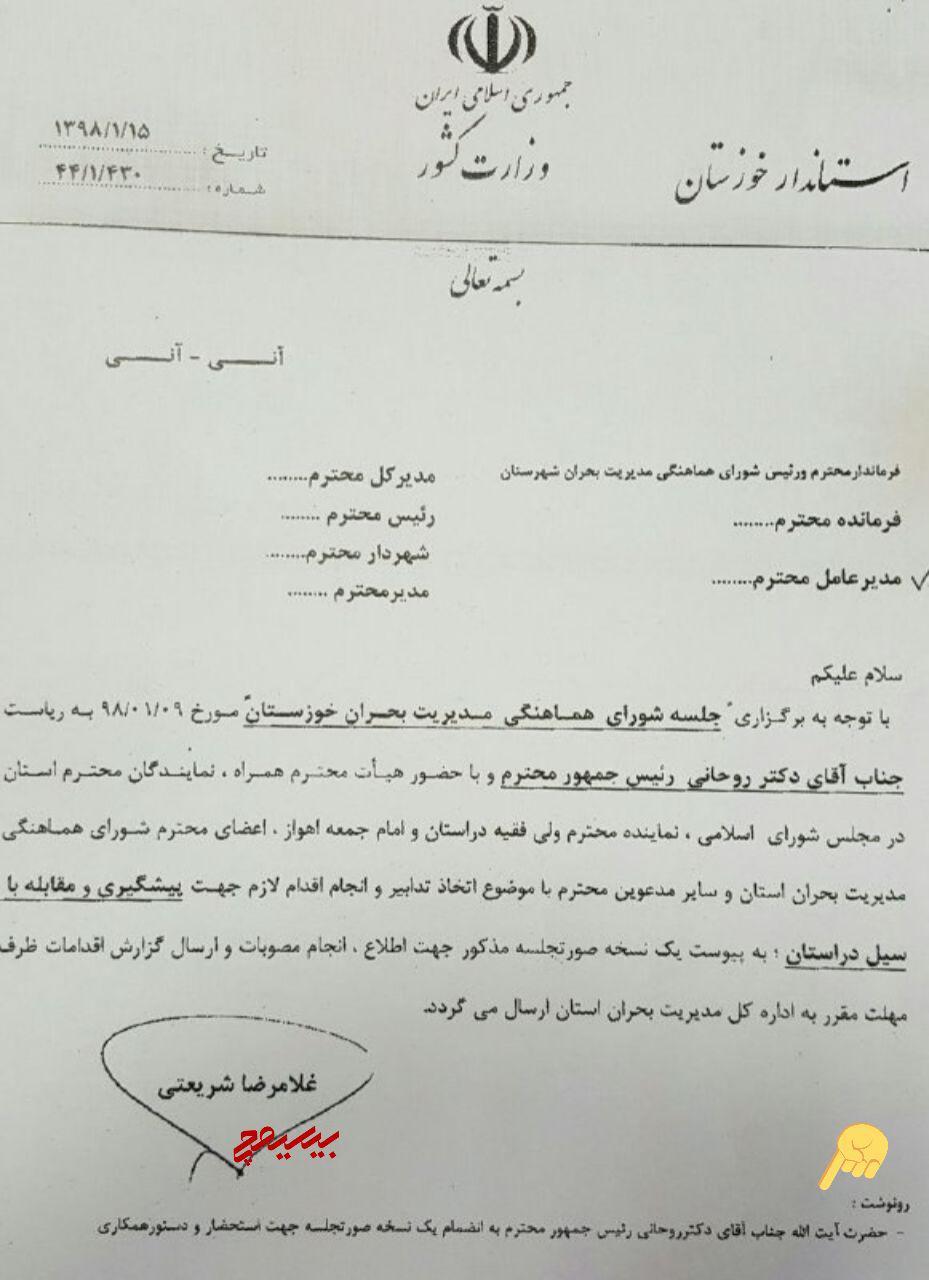 جمهوری اسلامی ایران
وزارت کشور
استاندار خوزستان
تاریخ: ۱۳۹۸/۱/۱۵
شماره: ۴۴/۱/۴۳۰
بسمه تعالی
آنـــی - آنـــی
فرماندارمحترم ورئیس شورای هماهنگی مدیریت بحران شهرستان
فرمانده محترم........
مدیرعامل محترم........
مدیرکل محترم........
رئیس محترم ........
شهردار محترم........
مدیرمحترم ........
سلام علیکم
با توجه به برگزاری "جلسه شورای هماهنگی مدیریت بحران خوزستان" مورخ ۹۸/۰۱/۰۹ به ریاست
جناب آقای دکتر روحانی رئیس جمهور محترم و با حضور هیأت محترم همراه ، نمایندگان محترم استان
در مجلس شورای اسلامی ، نماینده محترم ولی فقیه دراستان و امام جمعه اهواز ، اعضای محترم شورای هماهنگی
مدیریت بحران استان و سایر مدعوین محترم با موضوع اتخاذ تدابیر و انجام اقدام لازم جهت پیشگیری و مقابله با
سیل دراستان ؛ به پیوست یک نسخه صورتجلسه مذکور جهت اطلاع ، انجام مصوبات و ارسال گزارش اقدامات ظرف
مهلت مقرر به اداره کل مدیریت بحران استان ارسال می گردد.
غلامرضا شریعتی
بیسیمچی
رونوشت :
- حضرت آیت الله جناب آقای دکترروحانی رئیس جمهور محترم به انضمام یک نسخه صورتجلسه جهت استحضار و دستورهمکاری